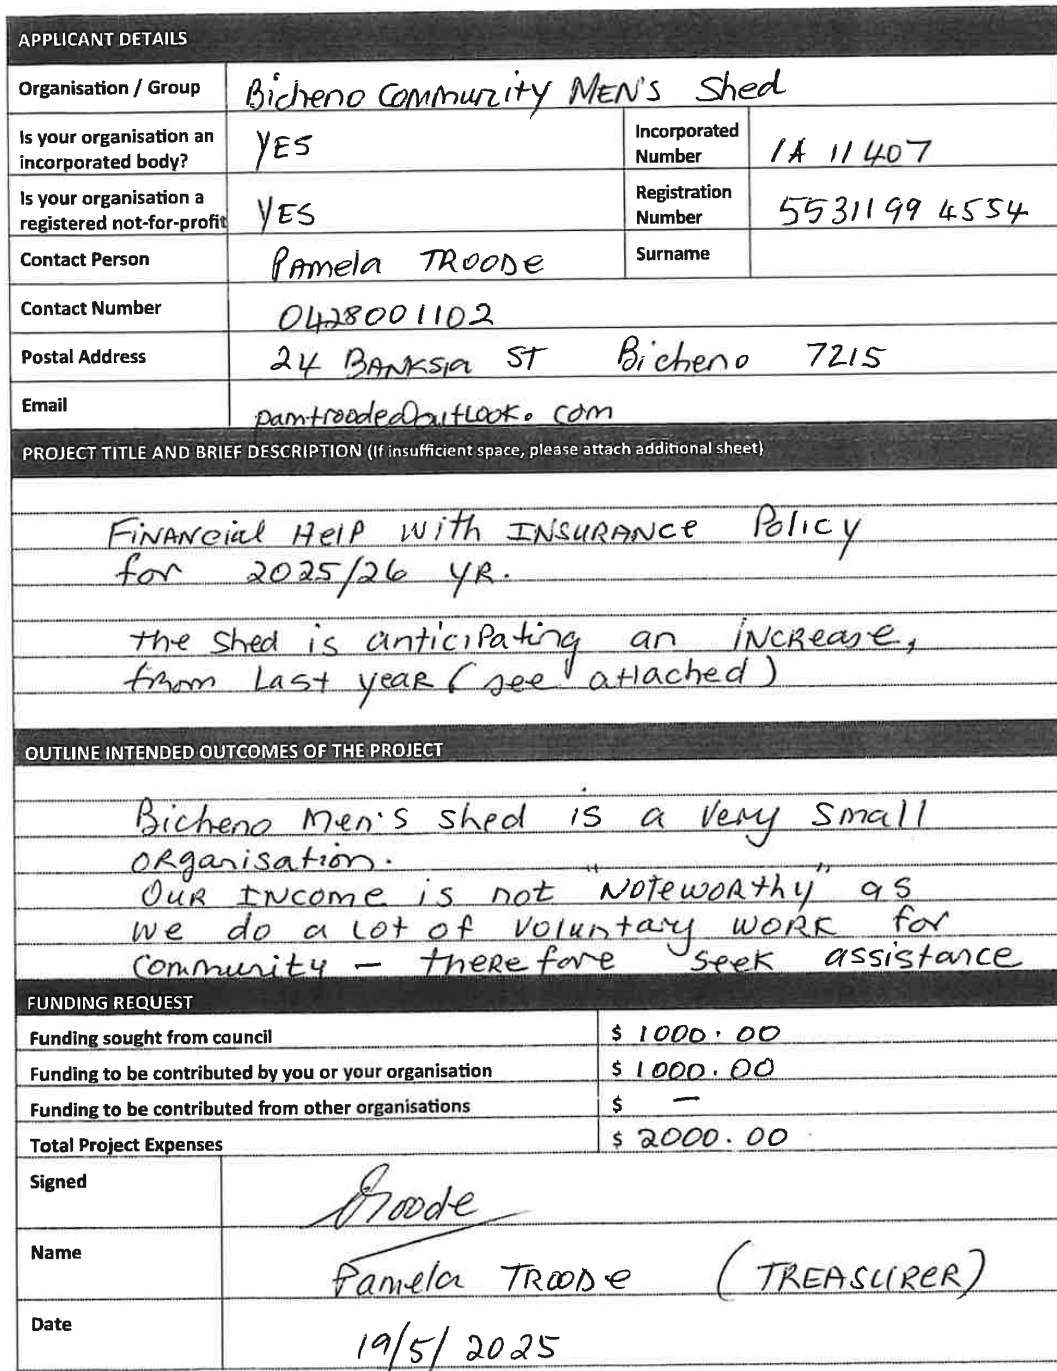 APPLICANT DETAILS
Organisation / Group Bicheno Community MEN'S Shed
Is your organisation an incorporated body? YES Incorporated Number IA 11407
Is your organisation a registered not-for-profit YES Registration Number 5531199 4554
Contact Person Pamela TROODE Surname
Contact Number 0428001102
Postal Address 24 BANKSIA ST Bicheno 7215
Email pamtroode@outlook.com
PROJECT TITLE AND BRIEF DESCRIPTION (If insufficient space, please attach additional sheet)
FINANCIAL HELP WITH INSURANCE Policy
for 2025/26 YR.
the Shed is anticipating an increase,
from Last year (see attached)
OUTLINE INTENDED OUTCOMES OF THE PROJECT
Bicheno Men's shed is a Very Small
organisation.
OUR INCOME is not "NOTEWORTHY" as
we do a lot of voluntary WORK for
Community – therefore seek assistance
FUNDING REQUEST
Funding sought from council $ 1000.00
Funding to be contributed by you or your organisation $ 1000.00
Funding to be contributed from other organisations $ –
Total Project Expenses $ 2000.00
Signed Proode
Name Pamela TROODE (TREASURER)
Date 19/5/2025